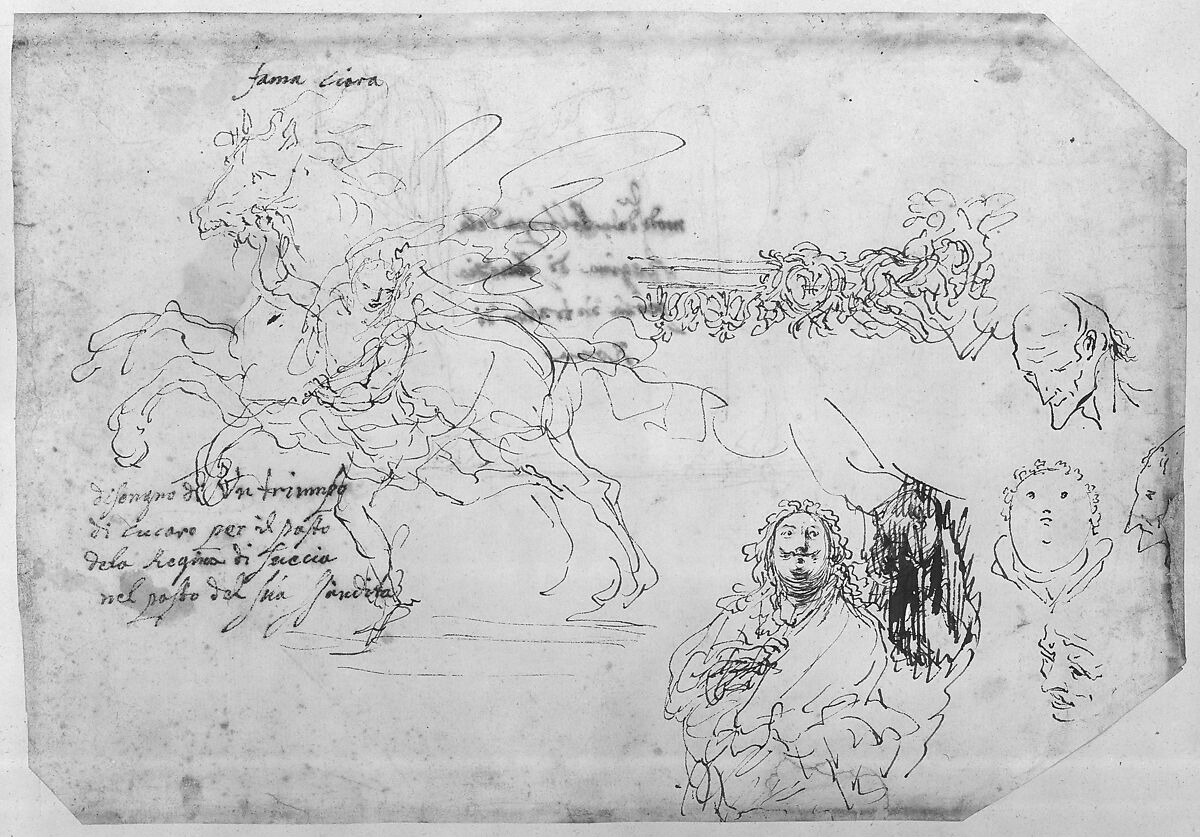 fama ciara
disengno di Un triumpo
di cucaro per il pasto
dela Regina di Suecia
nel pasto del sua Sandita